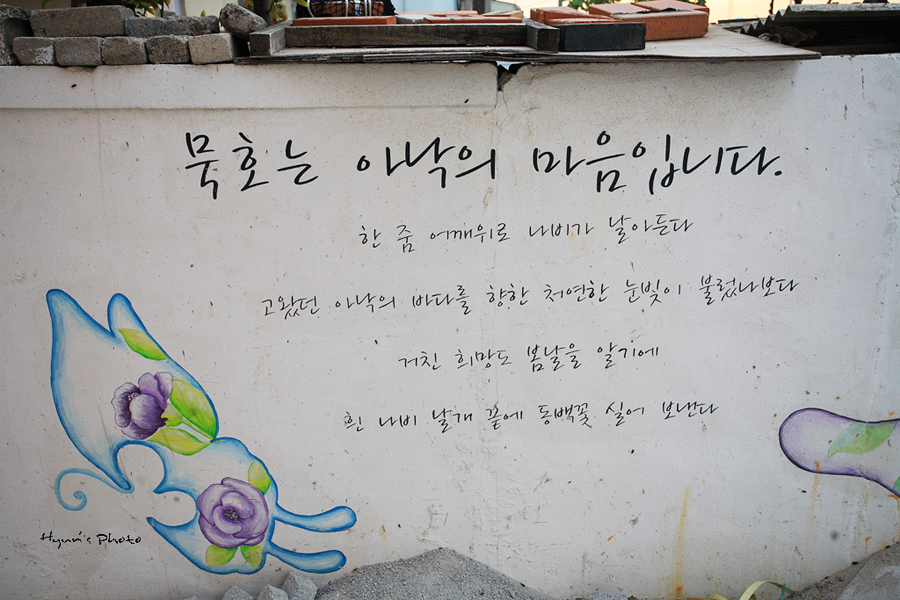 묵호는 아낙의 마음입니다.
한 줌 어깨위로 나비가 날아든다
고왔던 아낙의 바다를 향한 처연한 눈빛이 불렀나보다
거친 희망도 봄날을 알기에
흰 나비 날개 끝에 동백꽃 실어 보낸다
Hyun's Photo